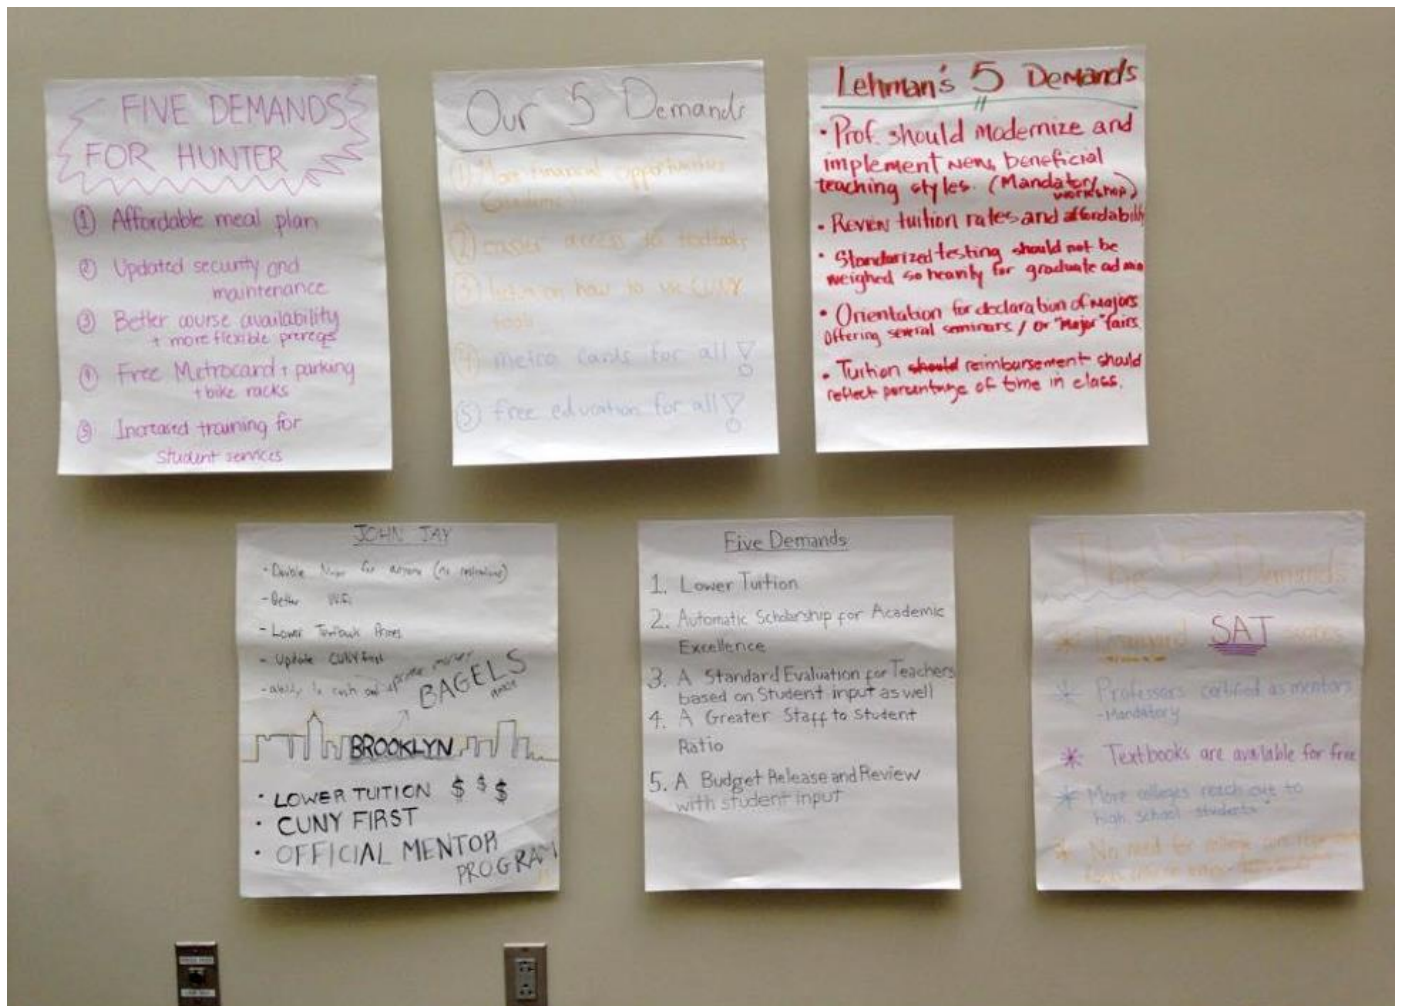 FIVE DEMANDS
FOR HUNTER
① Affordable meal plan
② Updated security and
maintenance
③ Better course availability
+ more flexible prereqs
④ Free Metrocard + parking
+ bike racks
⑤ Increased training for
student services
Our 5 Demands
① More financial opportunities
② easier access to textbooks
③ how to use CUNY
tools
④ metro cards for all!
⑤ free education for all!
Lehman's 5 Demands
• Prof. should modernize and
implement new, beneficial
teaching styles. (Mandatory
workshop)
• Review tuition rates and affordability
• Standarized testing should not be
weighed so heavily for graduate admin
• Orientation for declaration of Majors
offering several seminars / or "Major" fairs.
• Tuition should reimbursement should
reflect percentage of time in class.
JOHN JAY
- Double Major for anyone (no restrictions)
- Better Wifi
- Lower Textbook Prices
- Update CUNYfirst
- ability to cash out of
BAGELS
BROOKLYN
• LOWER TUITION $ $ $
• CUNY FIRST
• OFFICIAL MENTOR
PROGRAM
Five Demands
1. Lower Tuition
2. Automatic Scholarship for Academic
Excellence
3. A Standard Evaluation for Teachers
based on Student input as well
4. A Greater Staff to Student
Ratio
5. A Budget Release and Review
with student input
The 5 Demands
* SAT scores
* Professors certified as mentors
- Mandatory
* Textbooks are available for free
* More colleges reach out to
high school students
* No need for college